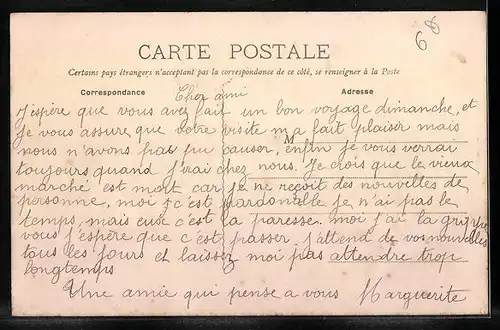 68
CARTE POSTALE
Certains pays étrangers n'acceptant pas la correspondance de ce côté, se renseigner à la Poste
Correspondance
Adresse
Cher ami
J'espère que vous avez fait un bon voyage dimanche, et
je vous assure, que votre visite m'a fait plaisir mais
M
nous n'avons pas pu causer, enfin je vous verrai
toujours quand j'irai chez nous. Je crois que le vieux
marché est mort car je ne reçoit des nouvelles de
personne, moi c'est pardonable je n'ai pas le
temps, mais eux c'est la paresse. moi j'ai la grippe
vous j'espère que c'est passer. j'attend de vos nouvelles
tous les jours et laissez moi pas attendre trop
longtemps
Une amie qui pense a vous Marguerite